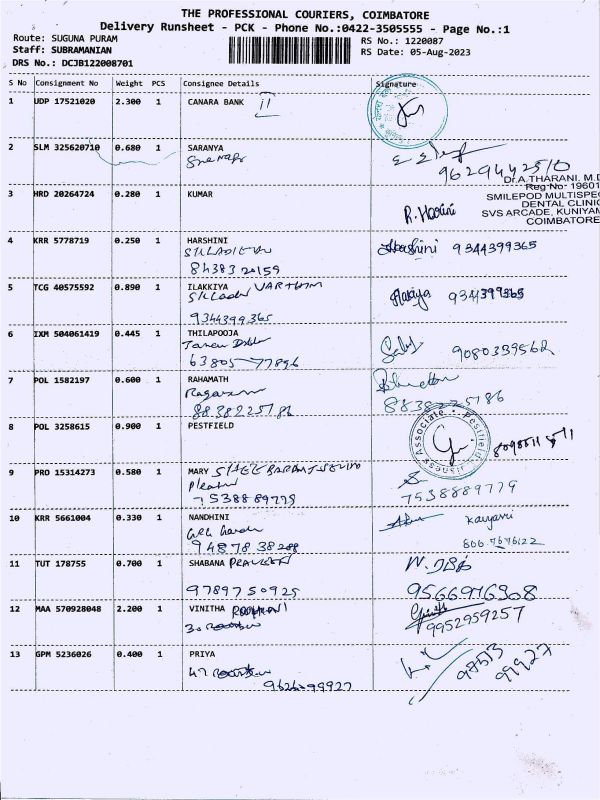 THE PROFESSIONAL COURIERS, COIMBATORE
Delivery Runsheet - PCK - Phone No.:0422-3505555 - Page No.:1
Route: SUGUNA PURAM
Staff: SUBRAMANIAN
DRS No.: DCJB122008701
RS No.: 1220087
RS Date: 05-Aug-2023
S No Consignment No Weight PCS Consignee Details Signature
1 UDP 17521020 2.300 1 CANARA BANK
2 SLM 325620710 0.680 1 SARANYA
9629442510
Dr.A.THARANI, M.D
Reg No 19601
SMILEPOD MULTISPEC
DENTAL CLINIC
SVS ARCADE, KUNIYAM
COIMBATORE
3 HRD 20264724 0.280 1 KUMAR R. Harini
4 KRR 5778719 0.250 1 HARSHINI Harshini 9344399365
84383 20159
5 TCG 40575592 0.890 1 ILAKKIYA VARTHINI Ilakiya 9344399365
9344399365
6 IXM 504061419 0.445 1 THILAPOOJA
63805-77896 9080339562
7 POL 1582197 0.600 1 RAHAMATH
8838225786 8838225786
8 POL 3258615 0.900 1 PESTFIELD
Associate Pestfield
9 PRO 15314273 0.580 1 MARY
7538889779 7538889779
10 KRR 5661004 0.330 1 NANDHINI
94878 38288
11 TUT 178755 0.700 1 SHABANA PRAVEEN
9789750925 9566976908
12 MAA 570928048 2.200 1 VINITHA
9952959257
13 GPM 5236026 0.400 1 PRIYA
47
9626-99927 97513 99927